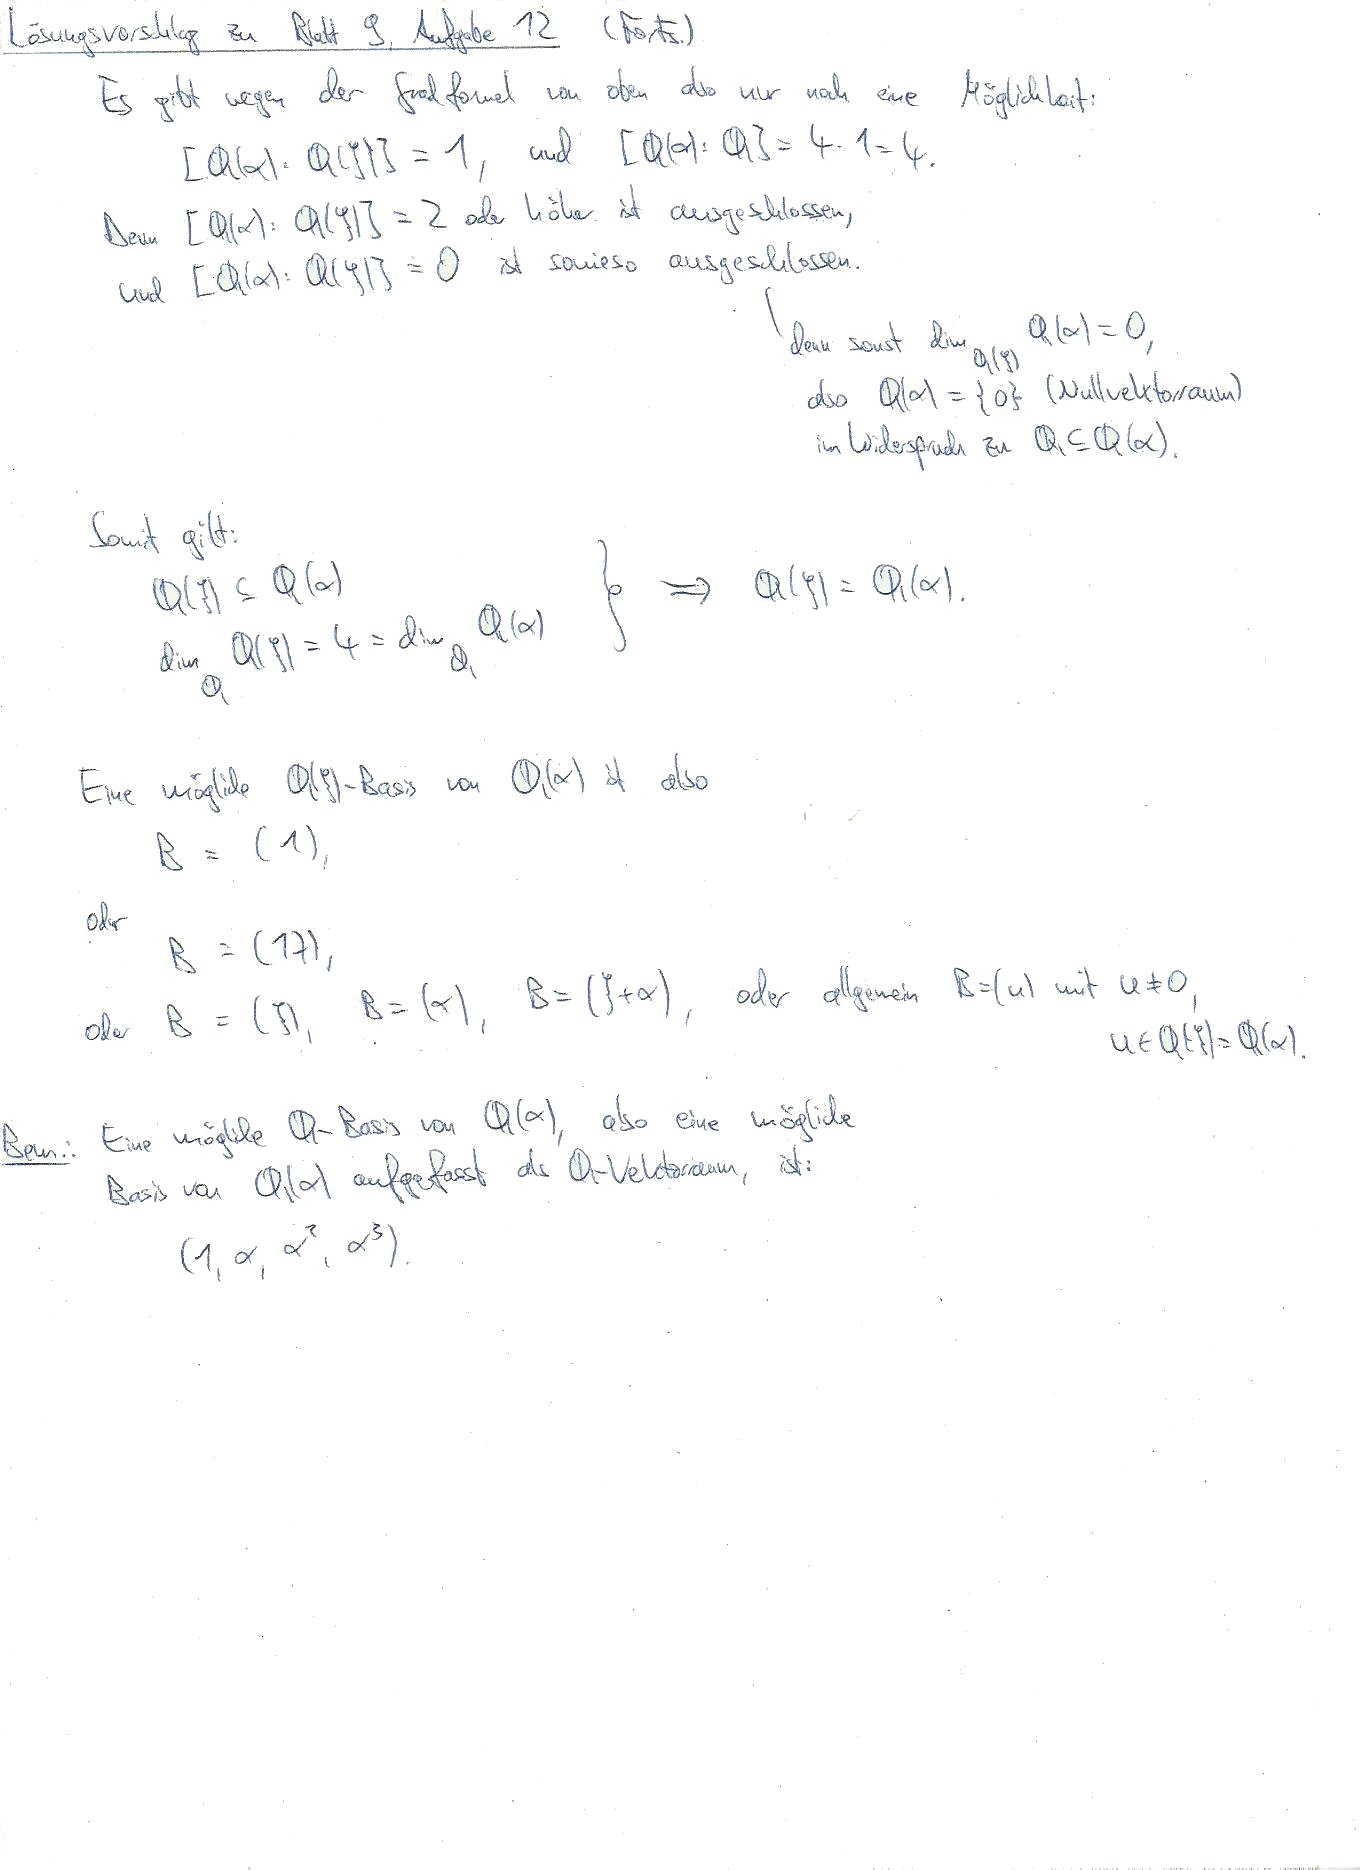 Lösungsvorschlag zu Blatt 9, Aufgabe 12 (Forts.)
Es gibt wegen der Gradformel von oben also nur noch eine Möglichkeit:
[ℚ(α) : ℚ(ξ)] = 1, und [ℚ(α) : ℚ] = 4 · 1 = 4.
Denn [ℚ(α) : ℚ(ξ)] = 2 oder höher ist ausgeschlossen,
und [ℚ(α) : ℚ(ξ)] = 0 ist sowieso ausgeschlossen.
denn sonst dim_ℚ(ξ) ℚ(α) = 0,
also ℚ(α) = {0} (Nullvektorraum)
im Widerspruch zu ℚ ⊆ ℚ(α).
Somit gilt:
ℚ(ξ) ⊆ ℚ(α)
dim_ℚ ℚ(ξ) = 4 = dim_ℚ ℚ(α) } ⟹ ℚ(ξ) = ℚ(α).
Eine mögliche ℚ(ξ)-Basis von ℚ(α) ist also
B = (1),
oder
B = (17),
oder B = (ξ), B = (α), B = (ξ+α), oder allgemein B = (u) mit u ≠ 0,
u ∈ ℚ(ξ) = ℚ(α).
Bem.: Eine mögliche ℚ-Basis von ℚ(α), also eine mögliche
Basis von ℚ(α) aufgefasst als ℚ-Vektorraum, ist:
(1, α, α², α³).